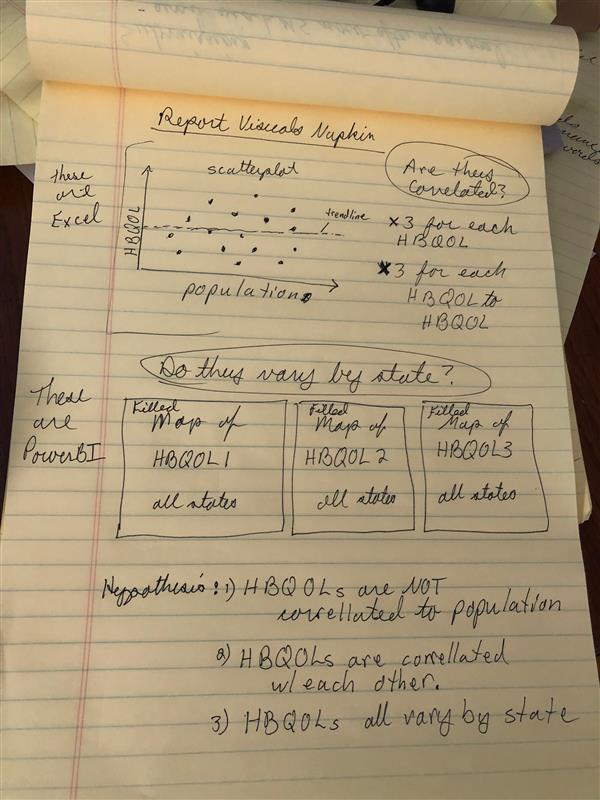 Report Visuals Napkin
these
are
Excel
scatterplot
HBQOL
trendline
population
Are they
Correlated?
x3 for each
HBQOL
x3 for each
HBQOL to
HBQOL
Do they vary by state?
These
are
PowerBI
Filled
Map of
HBQOL1
all states
Filled
Map of
HBQOL2
all states
Filled
Map of
HBQOL3
all states
Hypothesis: 1) HBQOLs are NOT
correllated to population
2) HBQOLs are correllated
w/ each other.
3) HBQOLs all vary by state